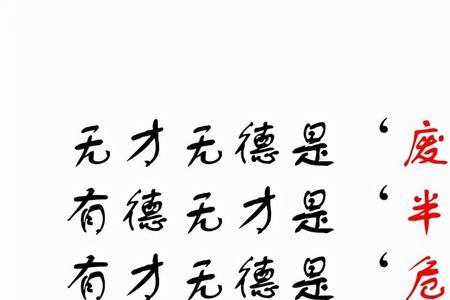 无才无德是‘废
有德无才是‘半
有才无德是‘危